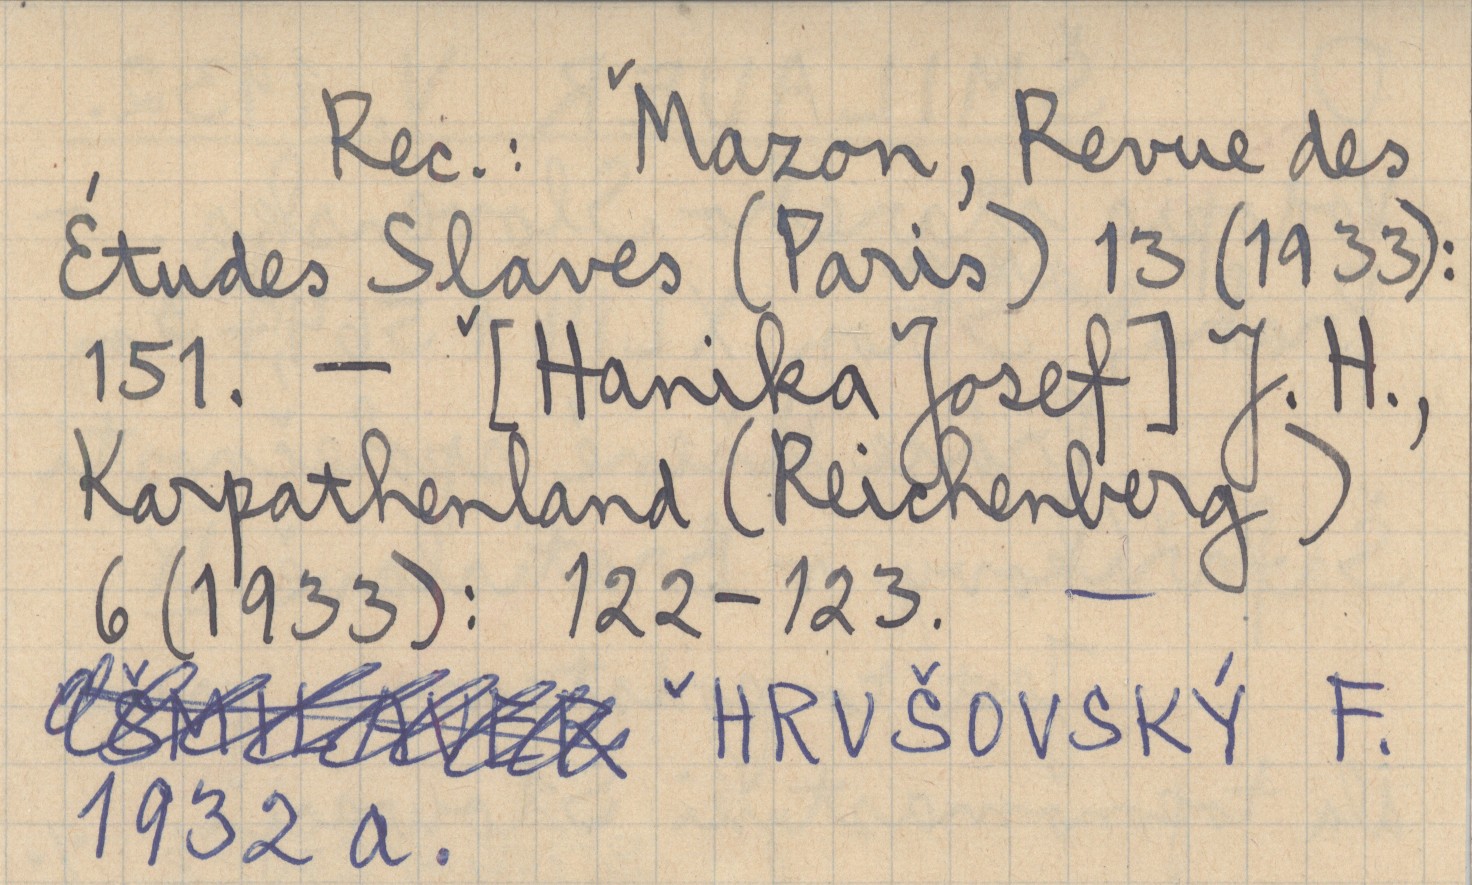 Rec.: ˇMazon, Revue des
Études Slaves (Paris) 13 (1933):
151. — ˇ[Hanika Josef] J. H.,
Karpathenland (Reichenberg)
6 (1933): 122-123. —
ˇHRUŠOVSKÝ F.
1932 a.